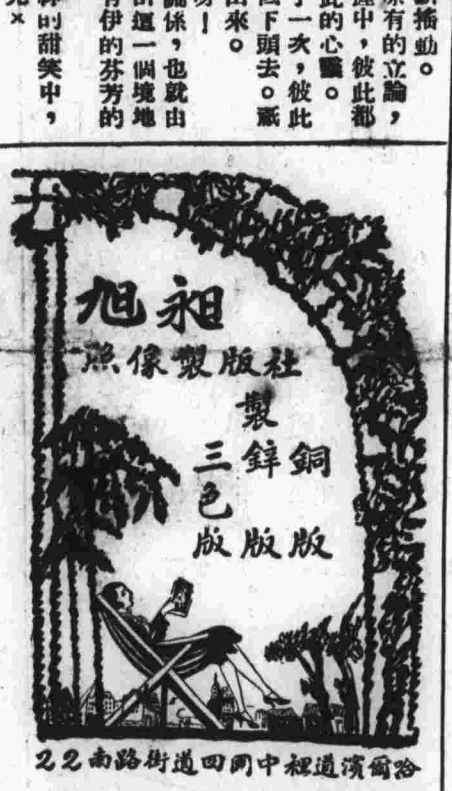 搖動。
有的立論，
中，彼此都
此的心靈。
了一次，彼此
下頭去。祇
出來。
！
係，也就由
這一個境地
有伊的芬芳的
的甜笑中，
×
旭昶
照像製版社
製
銅版
鋅版
三色版
哈爾濱道裡中國四道街路南22